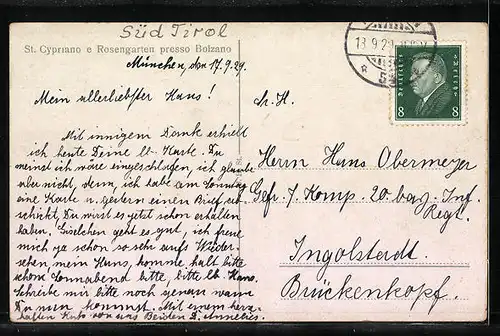 Süd Tirol
St. Cypriano e Rosengarten presso Bolzano
München, den 17.9.29.
Mein allerliebster Hans!
Mit innigem Dank erhielt
ich heute Deine lb. Karte. Du
meinst ich wäre eingeschlafen, ich glaube
aber nicht, denn, ich habe am Sonntag
eine Karte u. gestern einen Brief
schickt, Du wirst es jetzt schon erhalten
haben. geht es gut, ich freue
mich ja schon so sehr aufs Wieder-
sehen mein Hans, komme halt bitte
schon Sonnabend bitte, bitte lb. Hans.
Schreibe mir bitte noch genau wann
Du nun kommst. Mit einem herz-
haften Kuss von uns Beiden D. Annelies.
18.9.29
Deutsches Reich
8 8
S. H.
Herrn Hans Obermeyer
Gefr. 7. Komp. 20. bay. Inf.
Regt.
Ingolstadt.
Brückenkopf.